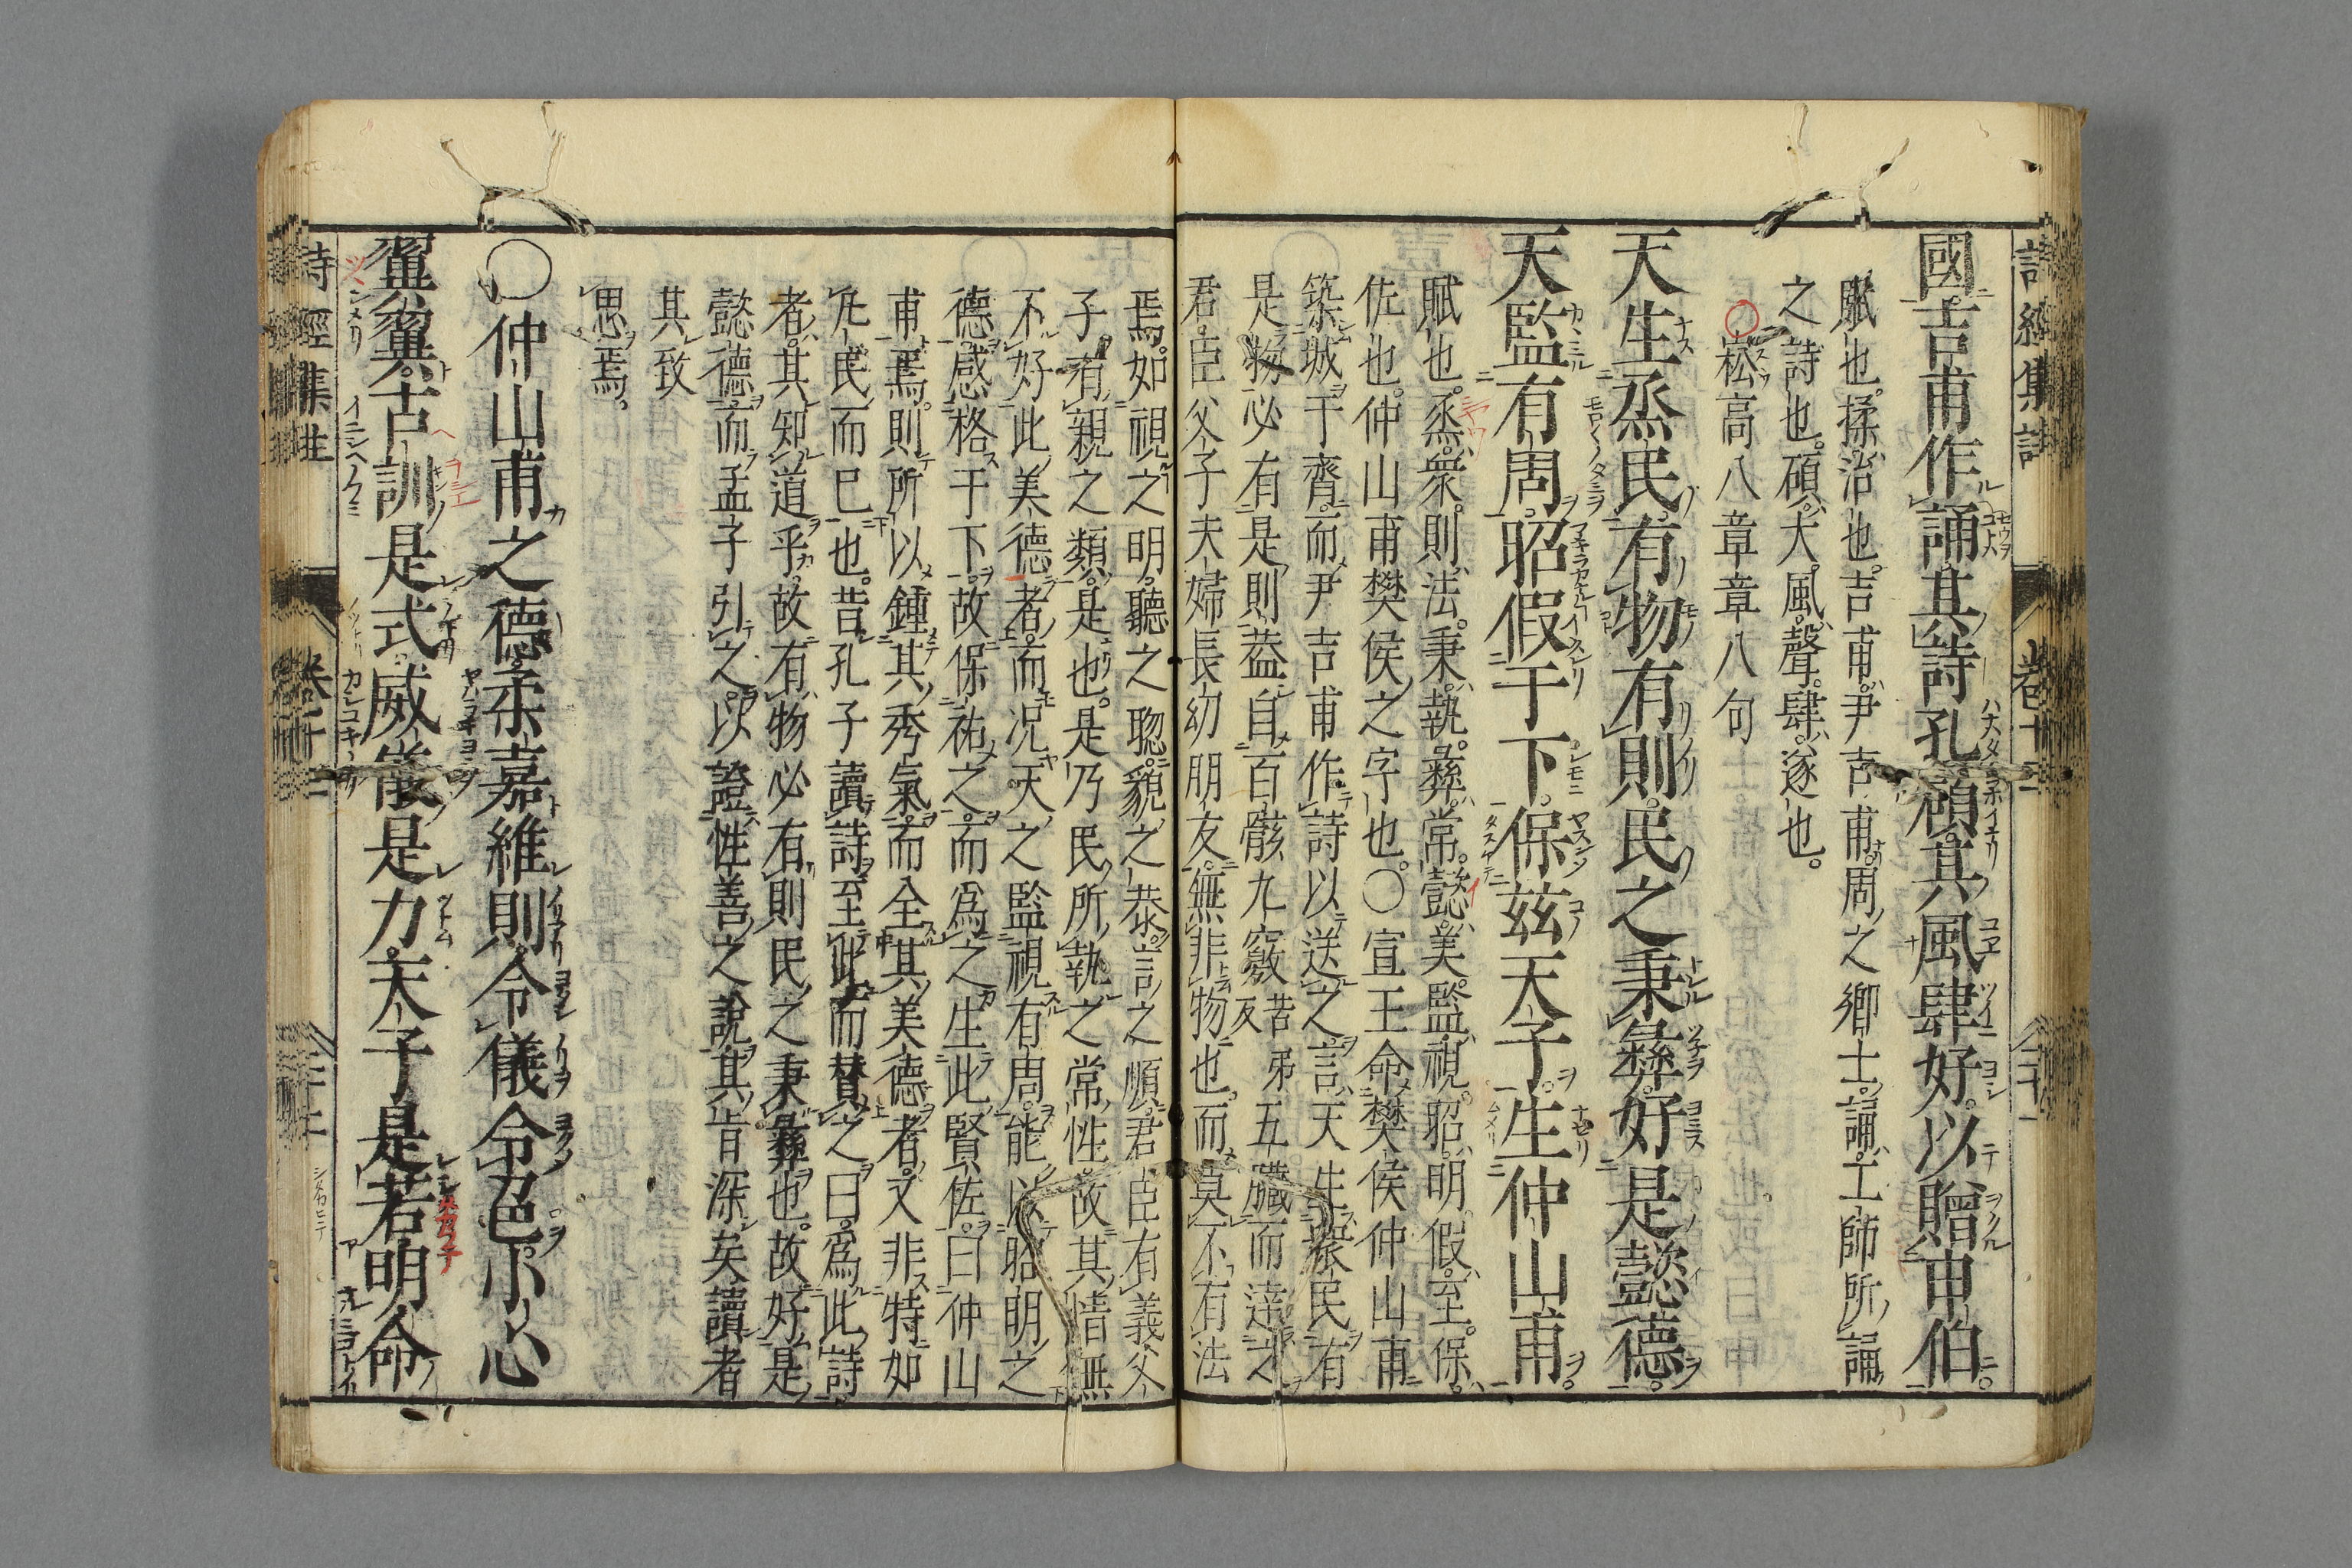 詩經集註
卷十
國吉甫作誦其詩孔碩其風肆好以贈申伯
賦也。揉、治也。吉甫、尹吉甫。周之卿士。誦、工師所誦
之詩也。碩、大。風、聲。肆、遂也。
○崧高八章章八句
天生烝民有物有則民之秉彝好是懿德
天監有周昭假于下保兹天子生仲山甫
賦也。烝、衆。則、法。秉、執。彝、常。懿、美。監、視。昭、明。假、至。保、
佐也。仲山甫樊侯之字也。○宣王命樊侯仲山甫
築城于齊。而尹吉甫作詩以送之。言、天生衆民有
是物必有是則。葢自百骸九竅苦弔反五臟而達之
君臣父子夫婦長幼朋友。無非物也。而莫不有法
焉。如視之明。聽之聰。貌之恭言之順。君臣有義父
子有親之類。是也。是乃民所執之常性故其情無
不好此美德者。而况天之監視有周。能以昭明之
德感格于下。故保祐之。而爲之生此賢佐。曰仲山
甫焉。則所以鍾其秀氣。而全其美德者。又非特如
凡民而已也。昔孔子讀詩至此而賛之曰。爲此詩
者。其知道乎。故有物必有則民之秉彝也。故好是
懿德。而孟子引之。以證性善之說其旨深矣讀者
其致
思焉。
○仲山甫之德柔嘉維則令儀令色小心
翼翼古訓是式威儀是力天子是若明命
詩經集註